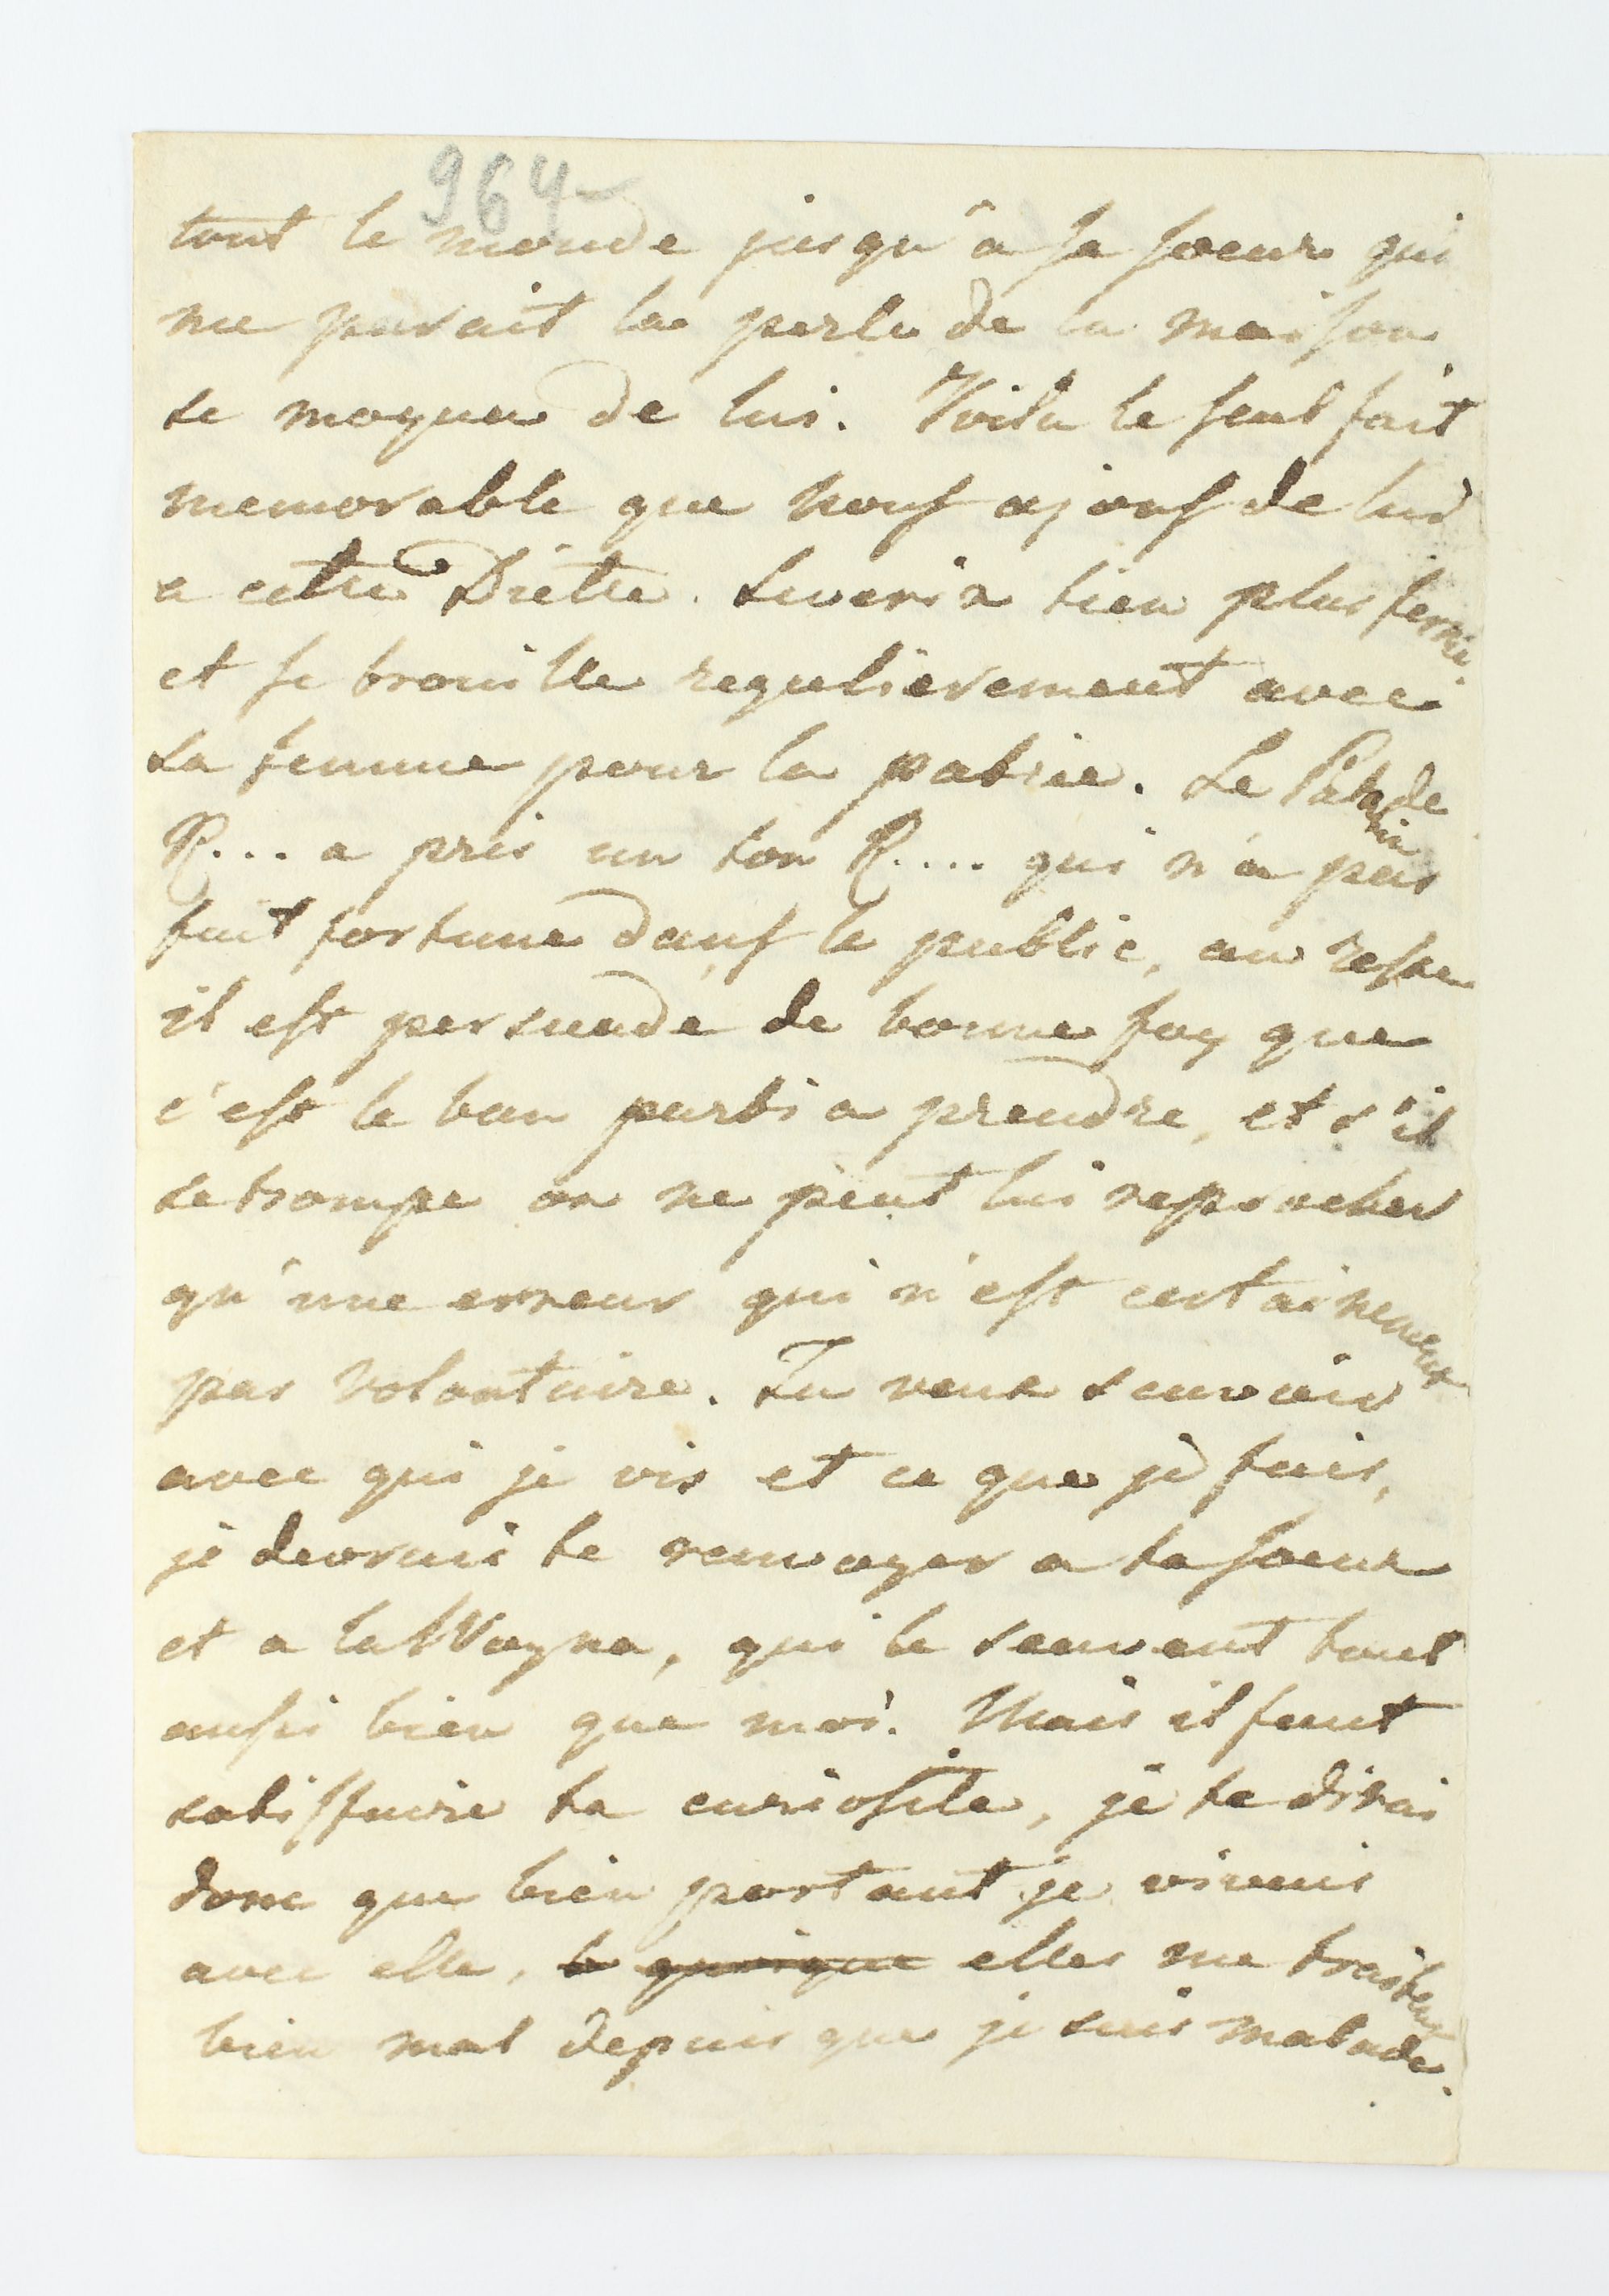 964
tout le monde jusqu'â sa soeur qui
me parait la perle de la maison
se moque de lui. Voila le seul fait
memorable que nous ajons de lui
a cette Diette. Severin tien plus ferme
et se brouille regulierement avec
sa femme pour la patrie. Le Palatin de
R... a pris un ton R.... qui n'a pas
fait fortune dans le public, au reste
il est persuade de bonne foy que
c'est le bon parti a prendre, et s'il
se trompe on ne peut lui reprocher
qu'une erreur qui n'est certainement
pas volontaire. Tu veux scavoir
avec qui je vis et ce que je fais,
je devrais te renvoyer a ta soeur
et a la Wayna, qui le scavent tout
aussi bien que moi. Mais il faut
satisfaire ta curiosite, je te dirai
donc que bien portant je vivais
avec elle, le quoique elles me traitent
bien mal depuis que je suis malade.